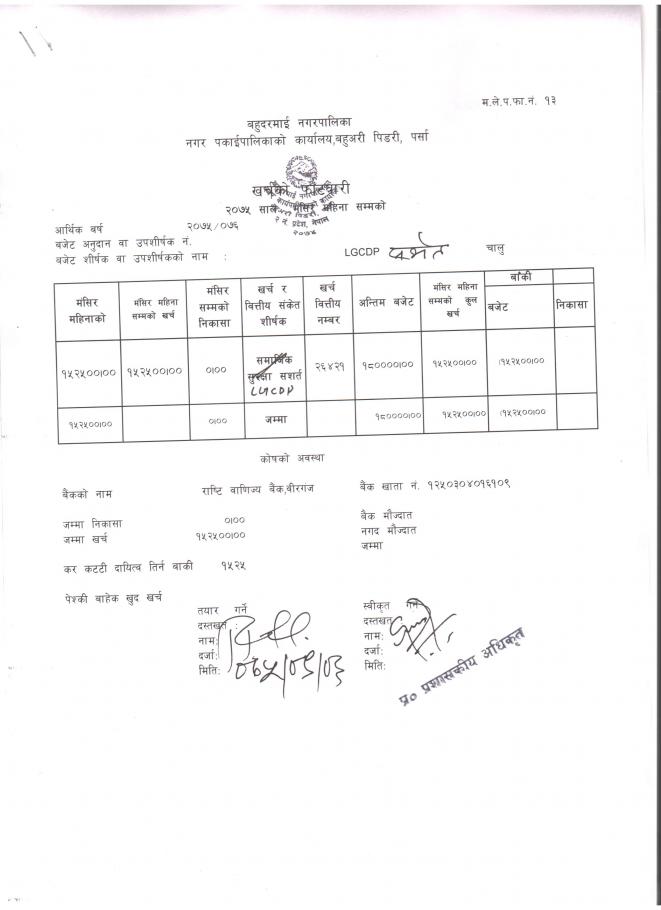 म.ले.प.फा.नं. १३
बहुदरमाई नगरपालिका
नगर पकाईपालिकाको कार्यालय,बहुअरी पिडरी, पर्सा
खर्चको फाँटवारी
२०७५ साल मंसिर महिना सम्मको
२ नं. प्रदेश, नेपाल
२०७४
आर्थिक बर्ष २०७५/०७६
बजेट अनुदान वा उपशीर्षक नं.
बजेट शीर्षक वा उपशीर्षकको नाम : LGCDP चालु
मंसिर महिनाको मंसिर महिना सम्मको खर्च मंसिर सम्मको निकासा खर्च र वित्तीय संकेत शीर्षक खर्च वित्तीय नम्बर अन्तिम बजेट मंसिर महिना सम्मको कुल खर्च बाँकी
बजेट निकासा
१५२५००।०० १५२५००।०० ०।०० सामाजिक सुरक्षा सशर्त २६४२१ १८००००।०० १५२५००।०० १५२५००।००
LGCDP
१५२५००।०० ०।०० जम्मा १८००००।०० १५२५००।०० १५२५००।००
कोषको अवस्था
बैकको नाम राष्टि वाणिज्य बैक,वीरगंज बैक खाता नं. १२५०३०४०१६१०९
जम्मा निकासा ०।०० बैक मौज्दात
जम्मा खर्च १५२५००।०० नगद मौज्दात
जम्मा
कर कटटी दायित्व तिर्न बाकी १५२५
पेश्की बाहेक खुद खर्च
तयार गर्ने स्वीकृत गर्ने
दस्तखत : दस्तखत
नाम: नाम:
दर्जा: दर्जा:
मिति: ०७५/०९/०३ मिति:
प्र० प्रशासकीय अधिकृत